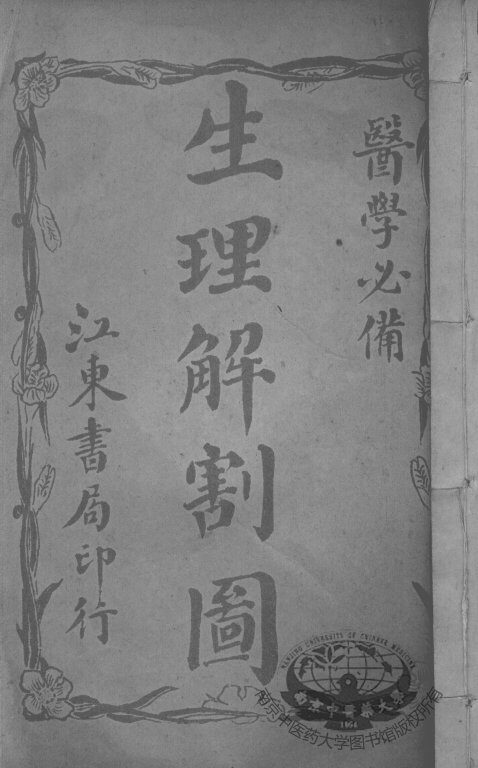 醫學必備
生理解割圖
江東書局印行
NANJING UNIVERSITY OF CHINESE MEDICINE
南京中醫藥大學
1954
南京中医药大学图书馆版权所有